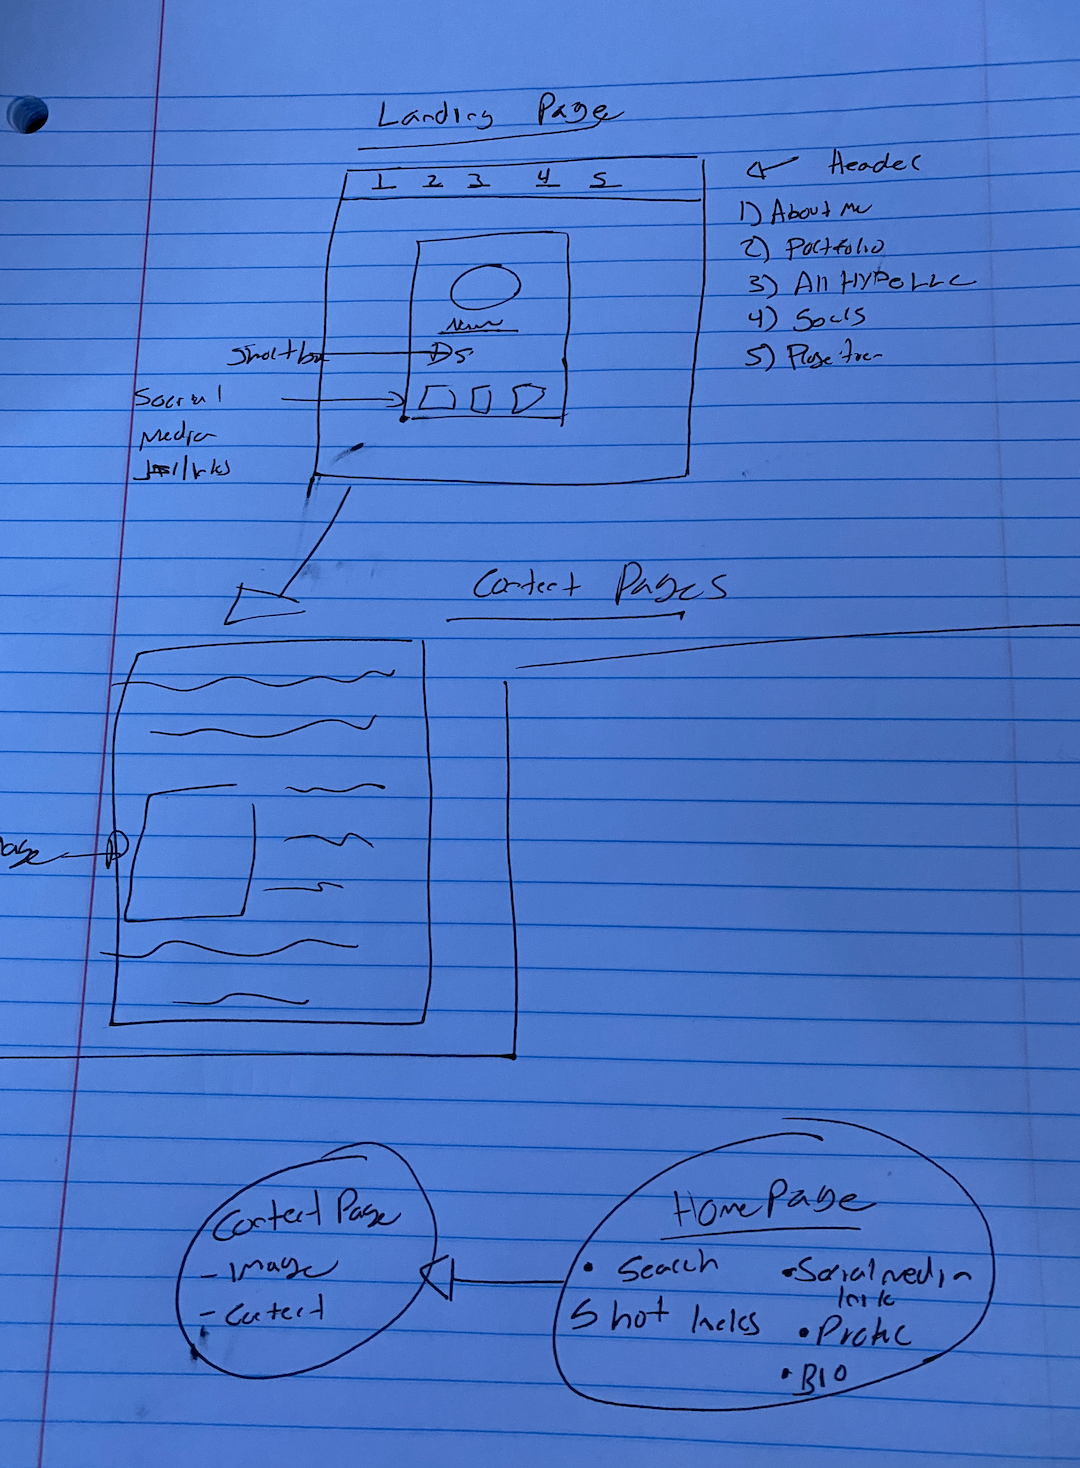 Landing Page
1 2 3 4 5
Header
1) About me
2) Portfolio
3) All Hype LLC
4) Socls
5)
Name
Short bio
Social
Media
links
Content Pages
Content Page
- Image
- Content
Home Page
• Search
Short links
• Social media
link
• Profile
• BIO